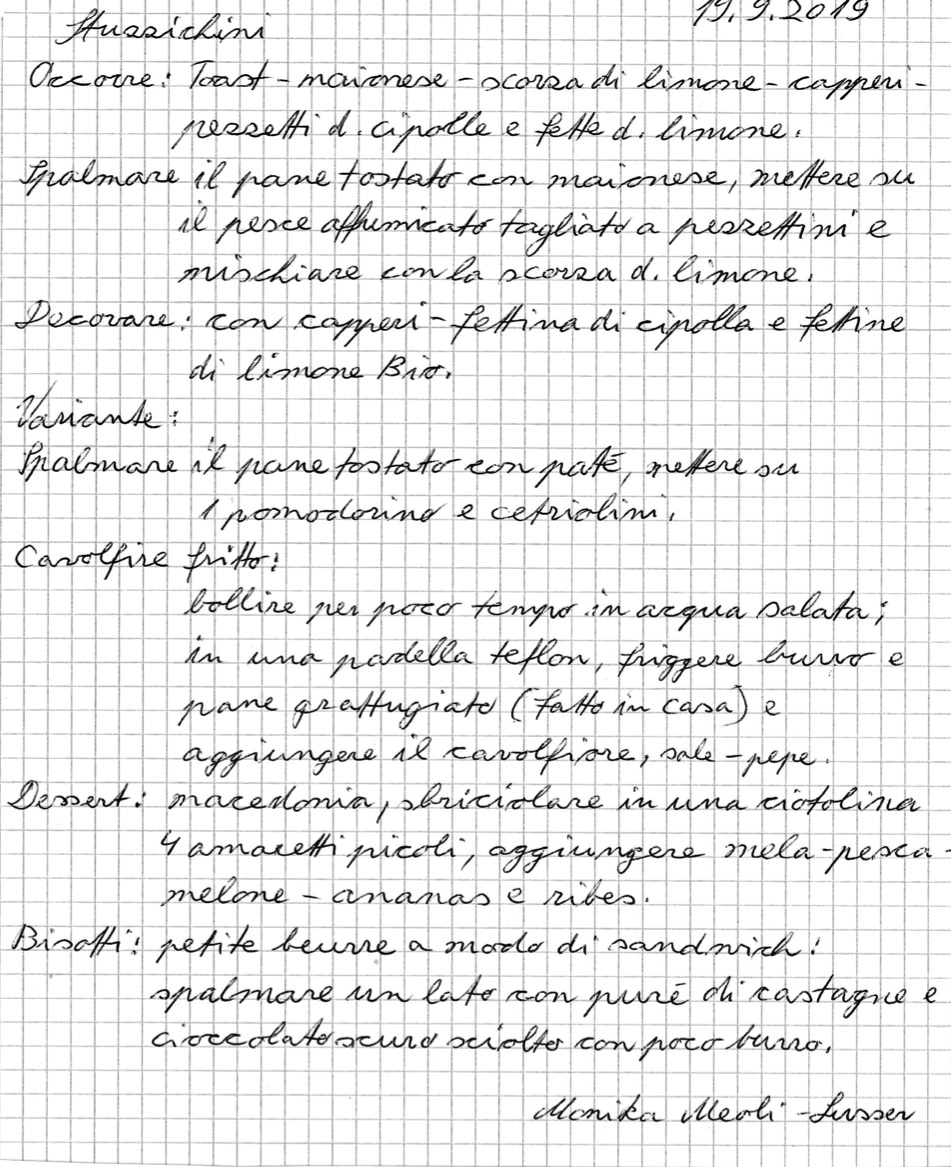 19.9.2019
Stuzzichini
Occorre: Toast - maionese - scorza di limone - capperi -
pezzetti d. cipolle e fette d. limone.
Spalmare il pane tostato con maionese, mettere su
il pesce affumicato tagliato a pezzettini e
mischiare con la scorza d. limone.
Decorare: con capperi - fettina di cipolla e fettine
di limone Bio.
Variante:
Spalmare il pane tostato con paté, mettere su
1 pomodorino e cetriolini.
Cavolfire fritto:
bollire per poco tempo in acqua salata;
in una padella teflon, friggere burro e
pane grattugiato (fatto in casa) e
aggiungere il cavolfiore, sale - pepe.
Dessert: macedonia, sbriciolare in una ciotolina
4 amaretti picoli, aggiungere mela - pesca -
melone - ananas e ribes.
Bisotti: petite beurre a modo di sandwich:
spalmare un lato con puré di castagne e
cioccolato scuro sciolto con poco burro.
Monika Meoli - Lusser